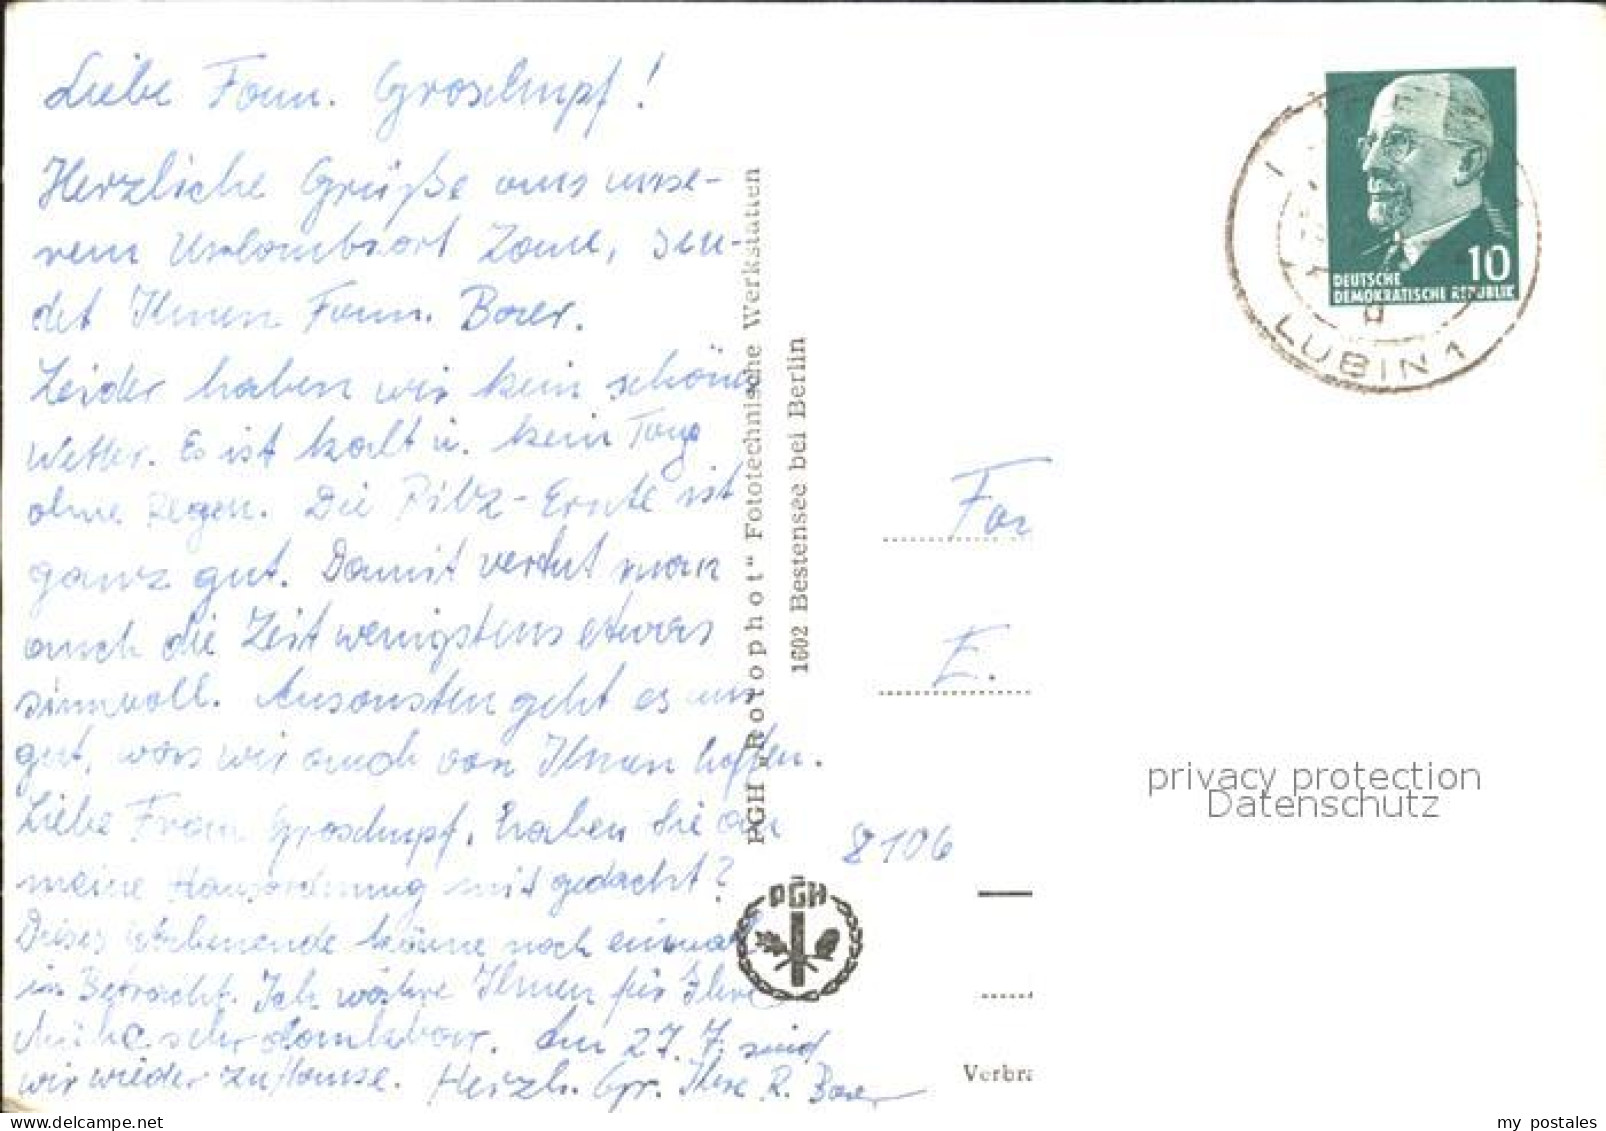 Liebe Fam. Groschupf!
Herzliche Grüße aus unse-
rem Urlaubsort Zaue, sen-
det Ihnen Fam. Baer.
Leider haben wir kein schönes
Wetter. Es ist kalt u. kein Tag
ohne Regen. Die Pilz-Ernte ist
ganz gut. Damit vertut man
auch die Zeit wenigstens etwas
sinnvoll. Ansonsten geht es uns
gut, was wir auch von Ihnen hoffen.
Liebe Frau Groschupf, haben Sie an
meine mit gedacht?
Dieses käme noch einmal
in Betracht. Ich wäre Ihnen für Ihre
Mühe sehr dankbar. Am 27. 7. sind
wir wieder zuhause. Herzl. Gr. Ihre R. Baer
PGH „Rotophot“ Fototechnische Werkstätten
1602 Bestensee bei Berlin
PGH
8106
10
DEUTSCHE
DEMOKRATISCHE REPUBLIK
LÜBBEN 1
Fa
E.
privacy protection
Datenschutz
Verbra
my postales